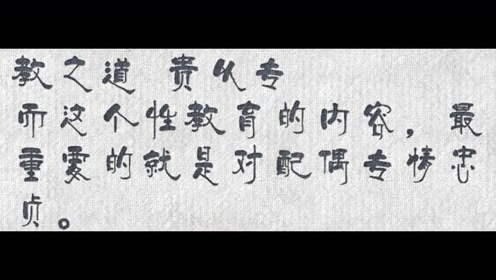 教之道 贵以专
而这个性教育的内容，最
重要的就是对配偶专情忠
贞。